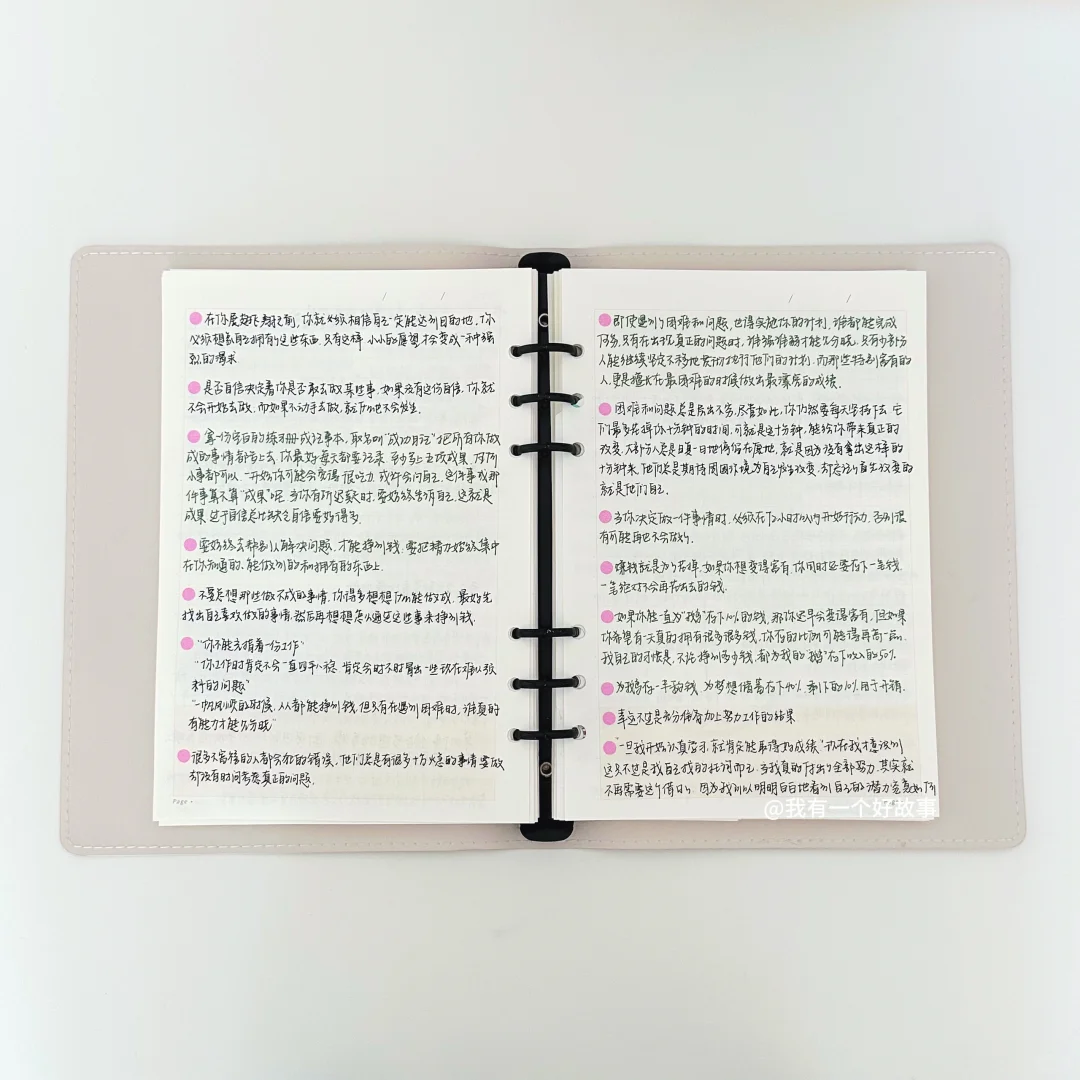 在你展翅飞翔之前，你就必须相信自己一定能达到目的地，你
必须想象自己拥有了这些东西，只有这样，小小的愿望才会变成一种强
烈的渴求
是否自信决定着你是否敢去做某些事，如果没有这份自信，你就
不会开始去做，而如果不动手去做，就什么也不会发生。
拿一份空白的练习册或记事本，取名叫“成功日记”把所有你做
成的事情都写上去，你最好每天都要记录，至少写上五项成果，任何
小事都可以，一开始你可能会觉得很吃力，或许会问自己，这件事或那
件事算不算“成果”呢，当你有所迟疑时，要始终坐明有自己，这就是
成果 过于自信总比缺乏自信要好得多。
要始终去帮别人解决问题，才能挣到钱，要把精力始终集中
在你知道的、能做到的和拥有的东西上
不要总想那些做不成的事情，你得多想想什么能做成，最好先
找出自己喜欢做的事情，然后再想想怎么通过这些事来挣到钱
“你不能只指着一份工作”
“你工作时肯定不会一直四平八稳，肯定会时不时冒出一些现在难以预
料的问题”
“一帆风顺的时候，人人都能挣到钱，但只有在遇到困难时，谁真的
有能力才能见分晓”
很多不富裕的人都会犯的错误，他们总是有很多十万火急的事情要做
却没有时间考虑真正的问题。
Page
即使遇到了困难和问题，也得实施你的计划，谁都能完成
任务，只有在出现真正的问题时，谁强谁弱才能见分晓，只有少部分
人能继续坚定不移地贯彻执行他们的计划，而那些特别富有的
人，更是擅长在最困难的时候做出最漂亮的成绩。
困难和问题总是层出不穷，尽管如此，你仍然要每天坚持下去，它
们最多花掉你十分钟的时间，可就是这十分钟，能给你带来真正的
改变，大部分人总是日复一日地停留在原地，就是因为没有拿出这样的
十分钟来，他们总是期待周围环境为自己发生改变，却忘记了首先改变的
就是他们自己。
当你决定做一件事情时，必须在72小时以内开始行动，否则很
有可能再也不会做了。
赚钱就是为了花掉，如果你想变得富有，你同时还要存下一笔钱
一笔绝对不会再花出去的钱
如果你能一直为“鹅”存下10%的钱，那你迟早会变得富有，但如果
你希望有一天真的拥有很多很多钱，你存的比例可能得再高一点，
我自己的习惯是，不论挣到多少钱，都为我的“鹅”存下收入的50%
为鹅存一半的钱，为梦想储蓄存下40%，剩下的10%用于开销
幸运不过是充分准备加上努力工作的结果
“一旦我开始认真学习，就肯定能取得好成绩”现在我才意识到
这只不过是我自己找的托词而已，当我真的付出了全部努力，其实就
不再需要这个借口了，因为我可以明明白白地看到自己的潜力究竟如何
@我有一个好故事